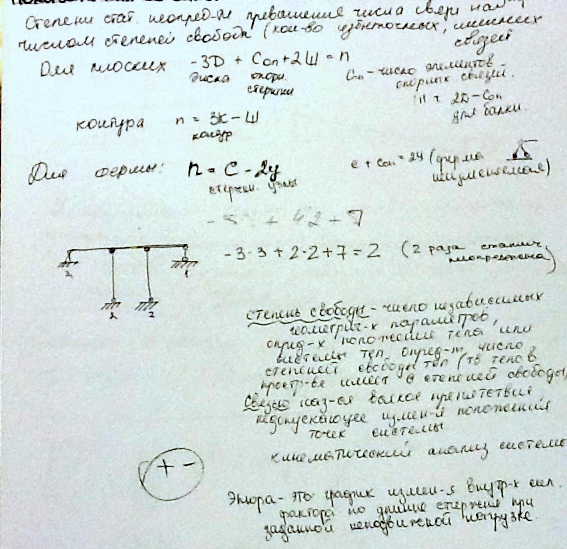 Степень стат. неопред-ти превышение числа связи над
числом степеней свободы (кол-во избыточных, лишних
связей
Для плоских -3D + Cоп + 2Ш = n
диска опорн.
стержни
Cоп - число элементов
опорных связей.
2D - Cоп
для балки.
контура n = 3К - Ш
контур
Для фермы: n = C - 2у
стержни узлы
c + Cоп = 2у (ферма
неизменяемая)
-3·3 + 2·2 + 7 = 2 (2 раза статич.
неопределена)
2 2 2 1
степень свободы - число независимых
геометрич-х параметров,
опред-х положение тела или
системы тел, опред-т число
степеней свободы тел (тв тело в
простр-ве имеет 6 степеней свободы)
Связью наз-ся всякое препятствие,
недопускающее измен-я положения
точек системы
кинематический анализ системы
+ -
Эпюра - это график измен-я внутр-х сил.
фактора по длине стержня при
заданной неподвижной нагрузке.